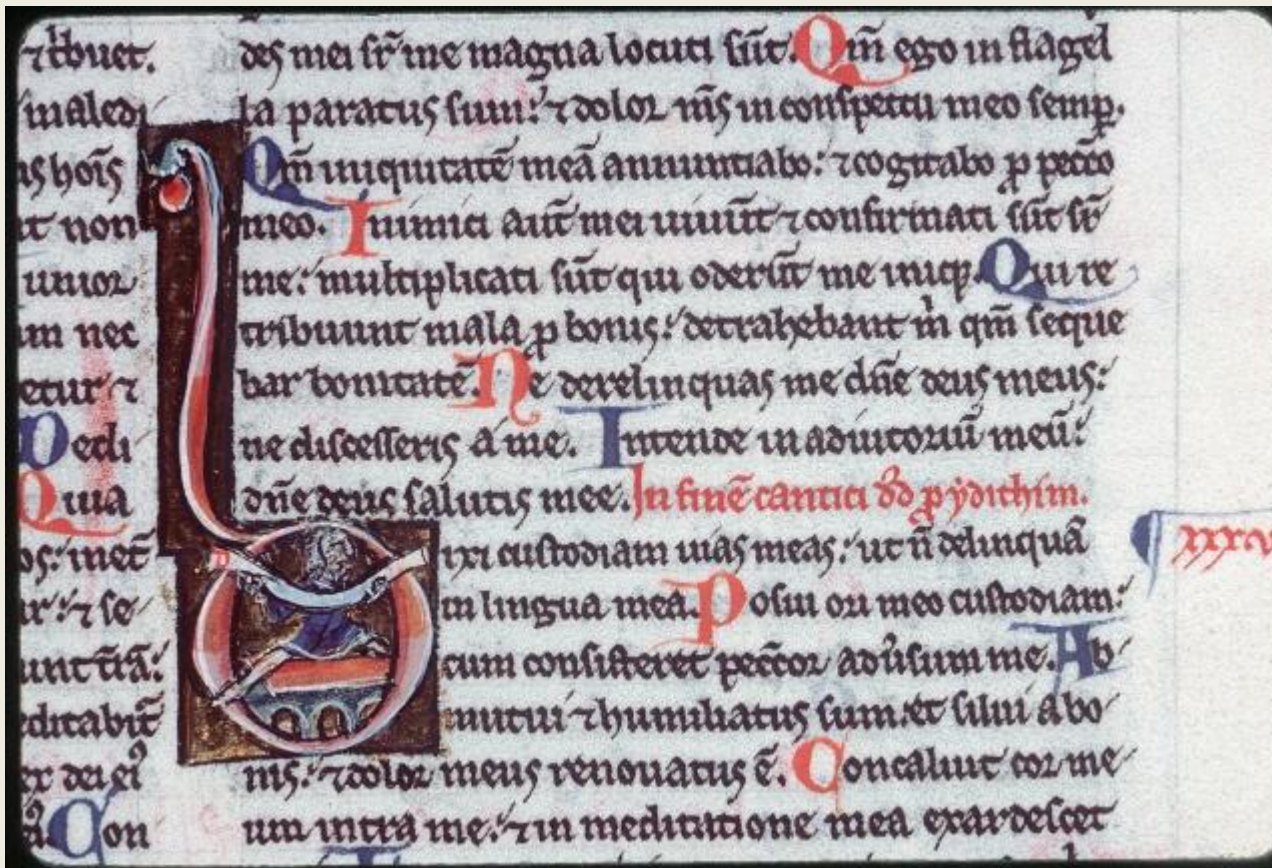 ⁊ t͛buet.
maledi
as hoı̅s
ut non
iunior
um nec
etur ⁊
Dedi
Quia
os: met̅
ur: ⁊ se
unt t̅ra̅:
editabit̅
ex dei eiꝰ
Con
des mei sr̅ me magna locuti su̅t. Qm̅ ego in flagel
la paratus sum: ⁊ dolor m̅s in conspectu meo semꝑ.
Qm̅ iniquitate̅ mea̅ annuntiabo: ⁊ cogitabo ꝓ pecc̅o
meo. Inimici aut̅ mei uiuu̅t ⁊ confirmati su̅t sr̅
me: multiplicati su̅t qui oderu̅t me iniq. Qui re
tribuunt mala ꝓ bonis: detrahebant m̅ qm̅ seque
bar bonitate̅. Ne derelinquas me dn̅e deus meus:
ne discesseris a me. Intende in adiutoriu̅ meu̅:
dn̅e deus salutis mee. In fine̅ cantici dd̅ ꝓ ydithim.
D ixi custodiam uias meas: ut n̅ delinqua̅
in lingua mea. Posui ori meo custodiam:
cum consisteret pecc̅or adu̅sum me. Ab
mutui ⁊ humiliatus sum. et silui a bo
nis: ⁊ dolor meus renouatus e̅. Concaluit cor me
um intra me: ⁊ in meditatione mea exardescet
xxxv